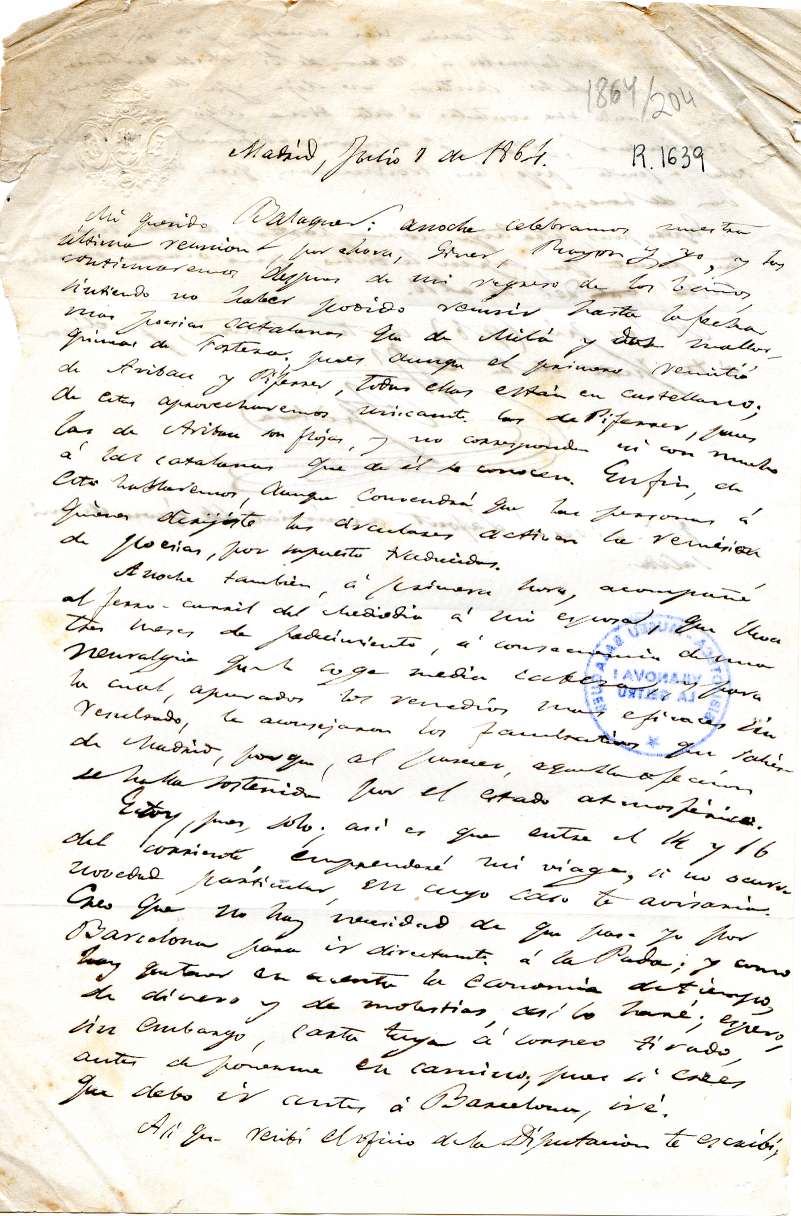 1864/204
R.1639
Madrid, Julio 7 de 1864.
Mi querido Balaguer: anoche celebramos nuestra
última reunion, por ahora, Giner, Rayon y yo, y las
continuaremos despues de mi regreso de los baños,
sintiendo no haber podido reunir hasta la fecha
mas poesias catalanas que de Milá y dos mallor-
quinas de Forteza; pues aunqe el primero remitió
de Aribau y Piferrer, todas ellas están en castellano;
de estas aprovecharemos unicamte. las de Piferrer, pues
las de Aribau son flojas, y no corresponden ni con mucho
á las catalanas que de él se conocen. En fin, de
esto hablaremos, aunque convendrá que las personas á
quienes dirijiste las circulares activen la remision
de poesias, por supuesto traducidas.
Anoche tambien, á primera hora, acompañé
al ferro-carril del Mediodia á mi esposa, que lleva
tres meses de padecimiento, á consecuencia de una
neuralgia que le coge media cabeza, y para
la cual, apurados los remedios mas eficaces sin
resultado, le aconsejaron los facultativos que saliera
de Madrid, porque, al parecer, aquella afeccion
se halla sostenida por el estado atmosférico.
Estoy, pues, solo; así es que entre el 14 y 16
del corriente emprenderé mi viage, si no ocurre
novedad particular, en cuyo caso te avisaria.
Creo que no hay necesidad de que pase yo por
Barcelona para ir directamte. á la Puda; y como
hay que tener en cuenta la economia de tiempo,
de dinero y de molestias, así lo haré; espero,
sin embargo, carta tuya á correo tirado,
antes de ponerme en camino, pues si crées
que debo ir antes á Barcelona, iré.
Así que recibí el oficio de la Diputacion te escribí,
BIBLIOTECA-MUSEU BALAGUER
VILANOVA I
LA GELTRÚ